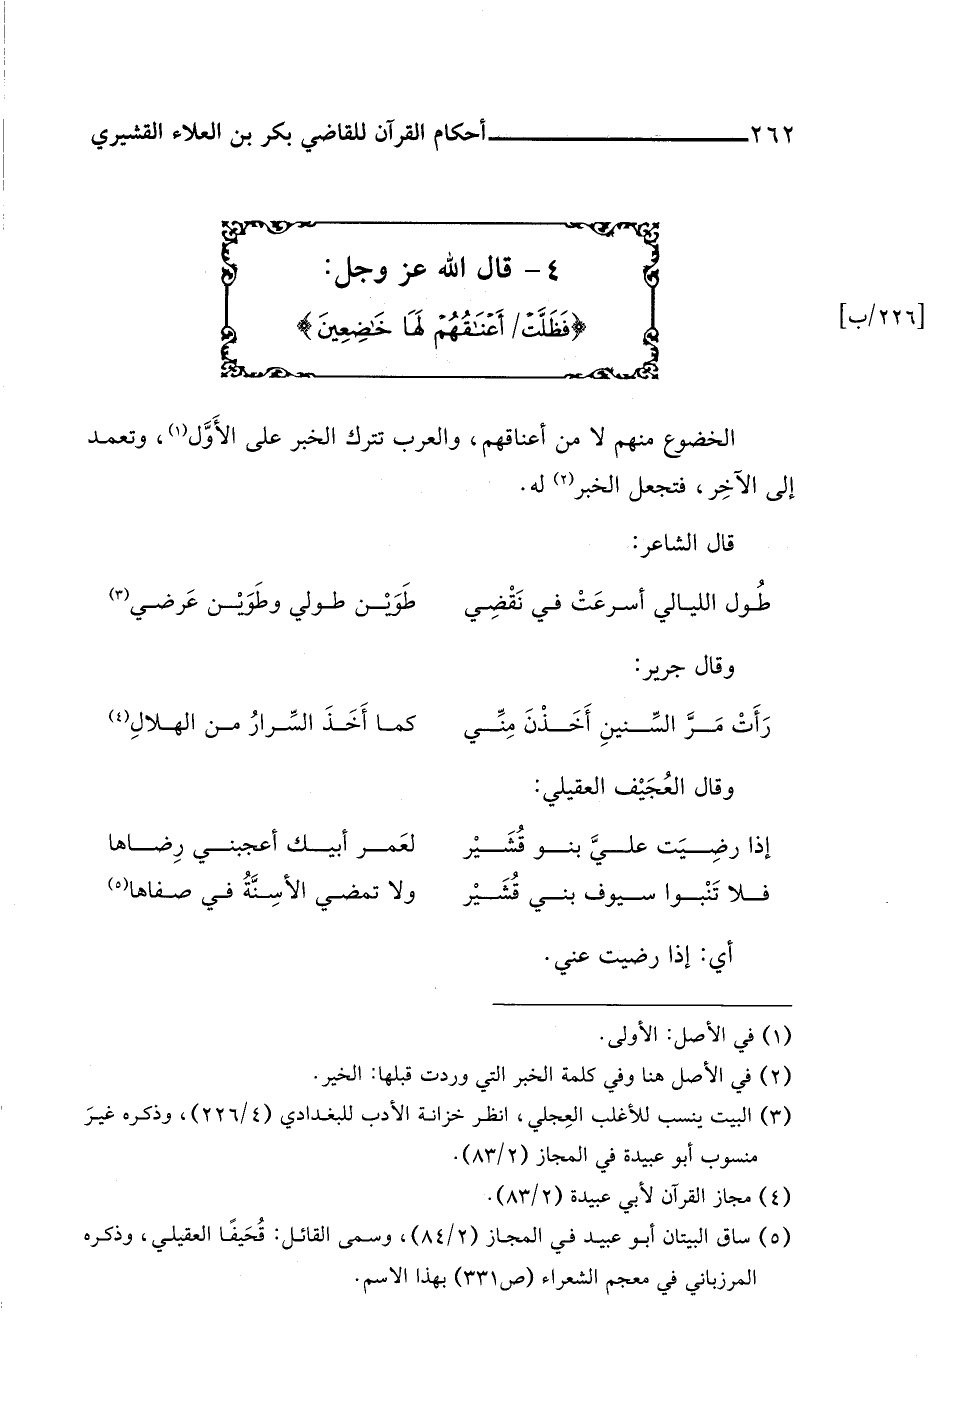 ٢٦٢ أحكام القرآن للقاضي بكر بن العلاء القشيري
٤ - قال الله عز وجل:
﴿فَظَلَّتْ/ أَعْنَٰقُهُمْ لَهَا خَٰضِعِينَ﴾
[٢٢٦/ب]
الخضوع منهم لا من أعناقهم، والعرب تترك الخبر على الأَوَّل(١)، وتعمد
إلى الآخِر، فتجعل الخبر(٢) له.
قال الشاعر:
طُول الليالي أسرعَتْ في نَقْضِي طَوَيْن طولي وطَوَيْن عَرضي(٣)
وقال جرير:
رَأَتْ مَرَّ السِّنينِ أَخَذْنَ مِنِّي كما أَخَذَ السِّرارُ من الهلالِ(٤)
وقال العُجَيْف العقيلي:
إذا رضِيَت عليَّ بنو قُشَيْر لعَمر أبيك أعجبني رِضاها
فلا تَنْبوا سيوف بني قُشَيْر ولا تمضي الأسِنَّةُ في صفاها(٥)
أي: إذا رضيت عني.
(١) في الأصل: الأولى.
(٢) في الأصل هنا وفي كلمة الخبر التي وردت قبلها: الخير.
(٣) البيت ينسب للأغلب العِجلي، انظر خزانة الأدب للبغدادي (٢٢٦/٤)، وذكره غيرَ
منسوب أبو عبيدة في المجاز (٨٣/٢).
(٤) مجاز القرآن لأبي عبيدة (٨٣/٢).
(٥) ساق البيتان أبو عبيد في المجاز (٨٤/٢)، وسمى القائل: قُحَيفًا العقيلي، وذكره
المرزباني في معجم الشعراء (ص٣٣١) بهذا الاسم.